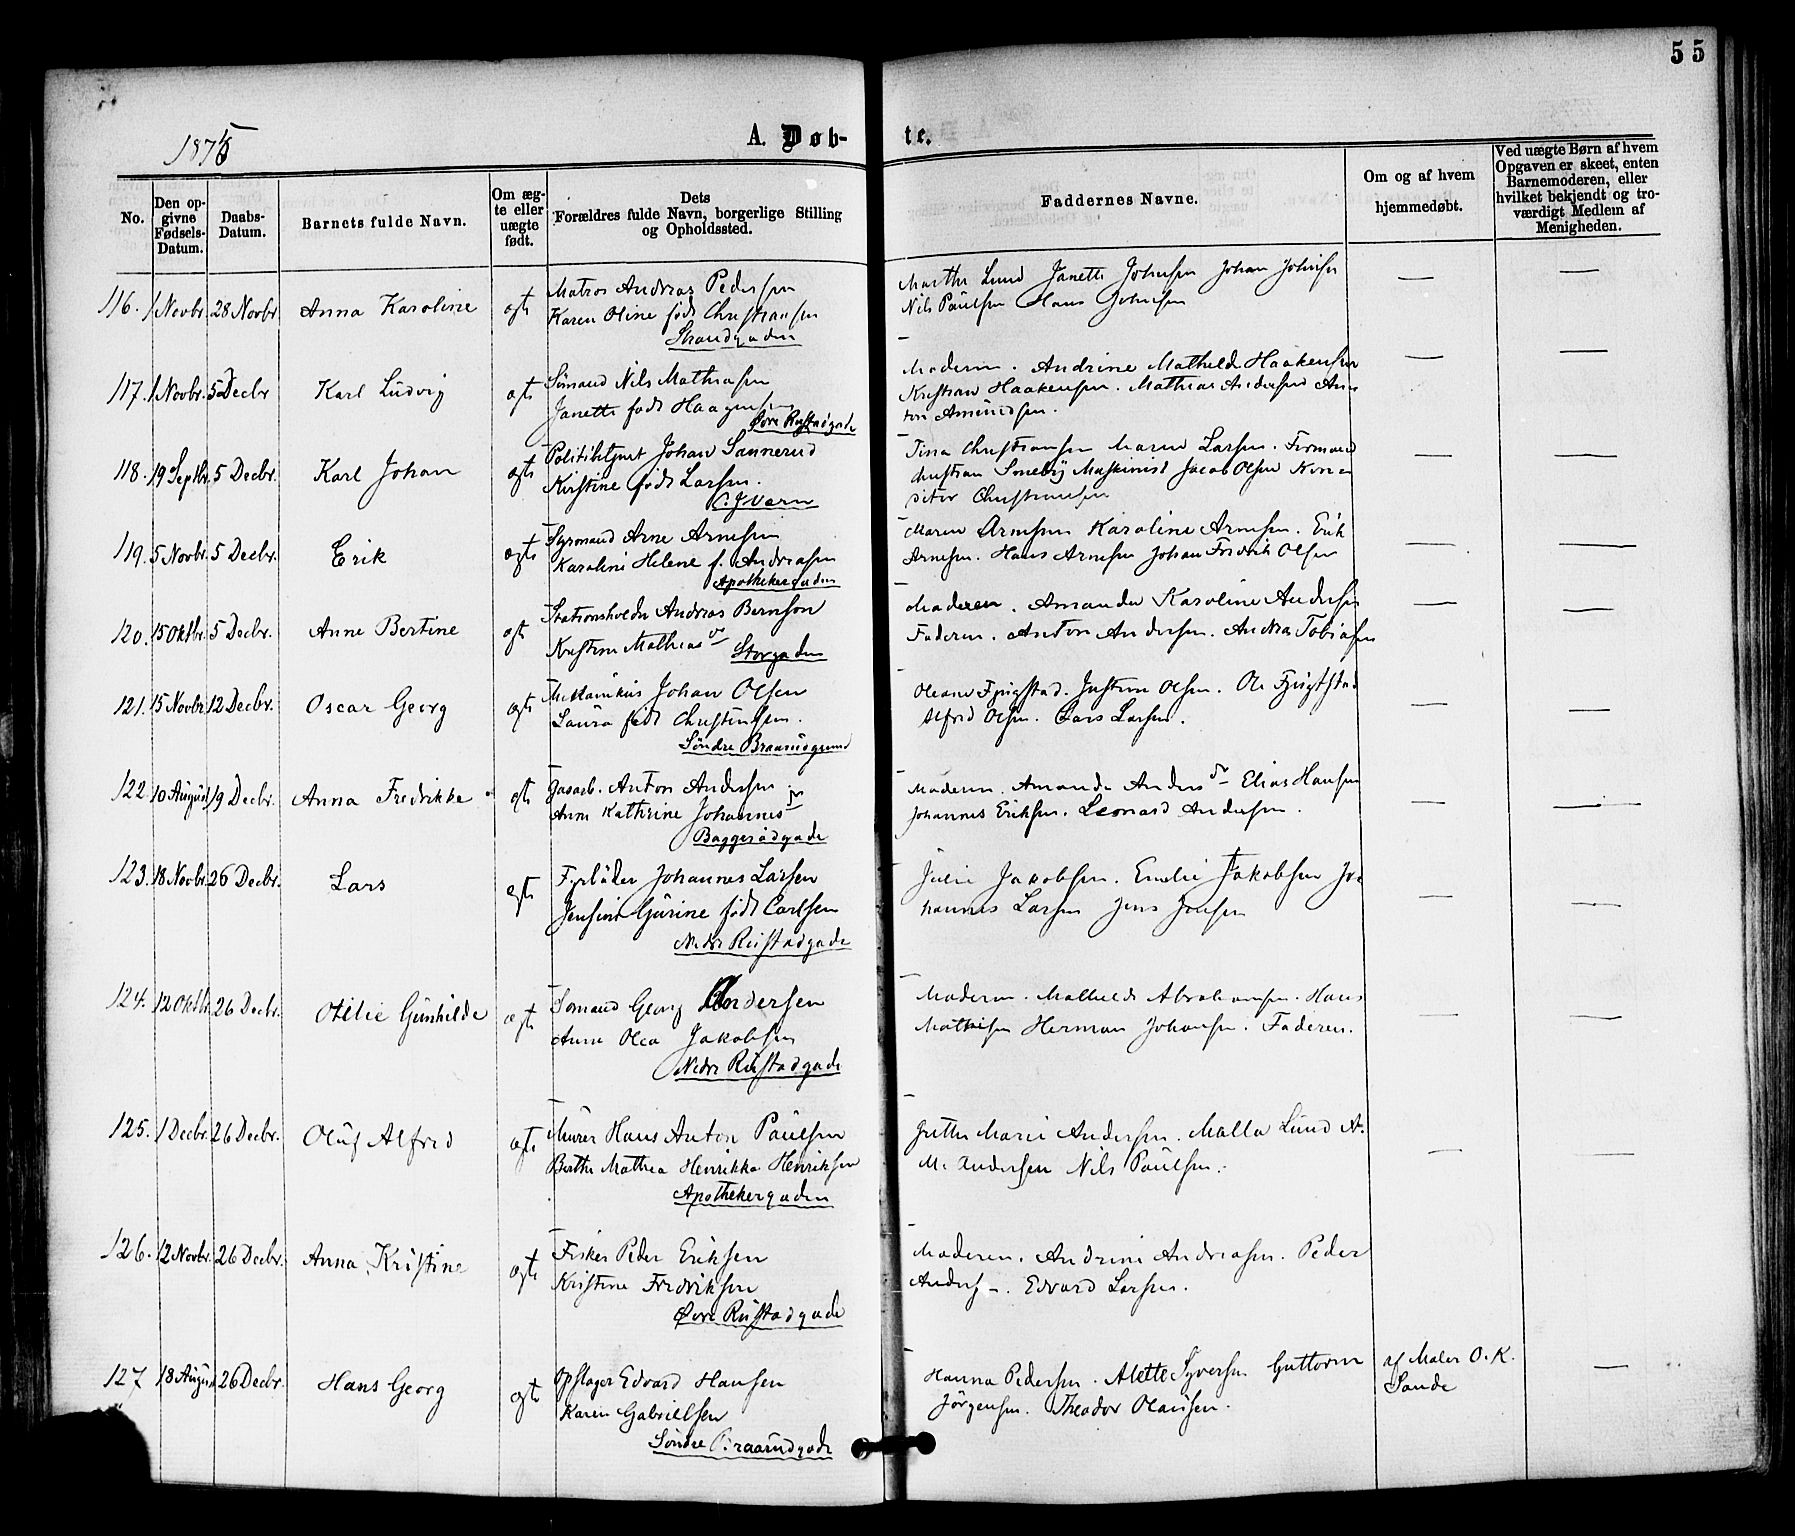 55
1875
A. Døb-
te.
No.
Den op-
givne
Fødsels-
Datum.
Daabs-
Datum.
Barnets fulde Navn.
Om æg-
te eller
uægte
født.
Dets
Forældres fulde Navn, borgerlige Stilling
og Opholdssted.
Faddernes Navne.
Om og af hvem
hjemmedøbt.
Ved uægte Børn af hvem
Opgaven er skeet, enten
Barnemoderen, eller
hvilket bekjendt og tro-
værdigt Medlem af
Menigheden.
116. 1 Novbr. 28 Novbr Anna Karoline ægte
Matros Andreas Pedersen
Karen Oline født Christiansen
Strandgaden
Marthe Lund Janette Johnsen Johan Johnsen
Nils Paulsen Hans Johnsen
117. 1 Novbr. 5 Decbr Karl Ludvig ægte
Sømand Nils Mathiasen
Janette født Haagensen
Øvre Rustadgade
Moderen. Andrine Mathilde Haakensen
Kristian Haakensen. Mathias Andersen An-
ton Amundsen.
118. 19 Septbr. 5 Decbr. Karl Johan ægte
Politibetjent Johan Sannerud
Kirstine født Larsen.
Tina Christiansen Maren Larsen. Formand
Christian Soneby Maskinist Jacob Olsen
Christiansen
119. 5 Novbr. 5 Decbr. Erik ægte
Styrmand Arne Arnesen
Karoline Helene f. Andreasen
Apothekergaden
Maren Arnesen Karoline Arnesen. Erik
Arnesen. Hans Arnesen Johan Fredrik Olsen
120. 15 Oktbr. 5 Decbr. Anne Bertine ægte
Stationsholder Andreas Bernson
Kristine Mathiasdr
Storgaden
Moderen. Amanda Karoline Andersen
Faderen. Anton Andersen. Andreas Tobiasen
121. 15 Novbr 12 Decbr. Oscar Georg ægte
Mekanikus Johan Olsen
Laura født Christensen.
Søndre Braarudgrund
Oleane Fjugstad. Justine Olsen. Ole Fjugtstad
Alfred Olsen. Lars Larsen.
122. 10 August 19 Decbr. Anna Fredrikke ægte
Gasarb. Anton Andersen
Anne Kathrine Johannesdr
Baggerødgade
Moderen. Amanda Andersdr Elias Hansen
Johannes Eriksen. Leonard Andersen.
123. 18 Novbr. 26 Decbr. Lars ægte
Johannes Larsen
Jensine Gurine født Carlsen
Nedre Rustadgade
Julie Jakobsen. Emilie Jakobsen Jo-
hannes Larsen Jens Jensen
124. 12 Oktbr 26 Decbr. Otilie Gunhilde ægte
Sømand Georg Andersen
Anne Olea Jakobsen
Nedre Rustadgade
Moderen. Mathilde Abrahamsen. Hans
Mathisen Herman Johansen. Faderen.
125. 1 Decbr. 26 Decbr. Oluf Alfred ægte
Murer Hans Anton Paulsen
Berthe Mathea Henrikka Henriksen
Apothekergaden
Marie Andersen. Malla Lund A.
M. Andersen Nils Paulsen.
126. 12 Novbr. 26 Decbr. Anna Kristine ægte
Fisker Peder Eriksen
Kristine Fredriksen
Øvre Rustadgade
Moderen. Andrine Andreasen. Peder
Anders –. Edvard Larsen.
127 18 August 26 Decbr. Hans Georg ægte
Opslager Edvard Hansen
Karen Gabrielsen
Søndre Braarudgade
Hanna Pedersen. Alette Syversen Guttorm
Jörgensen. Theodor Olausen.
af Maler O. K.
Sande